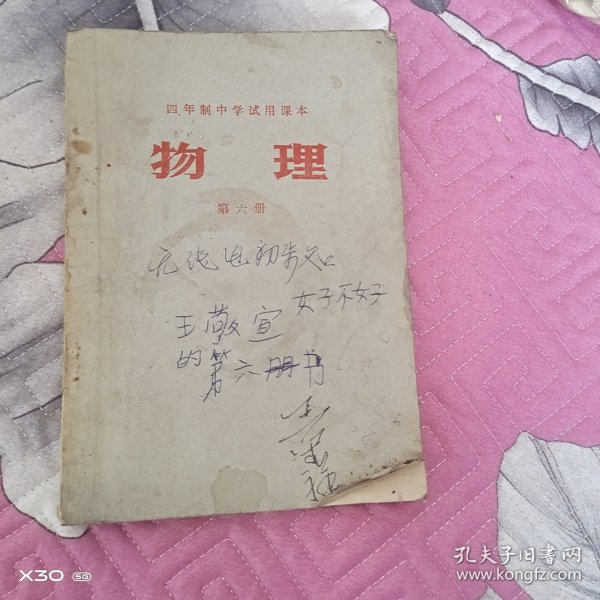 四年制中学试用课本
物 理
第六册
无线电初步知
好不好
王敬宣
的第六册书
X30 5G
孔夫子旧书网
www.kongfz.com